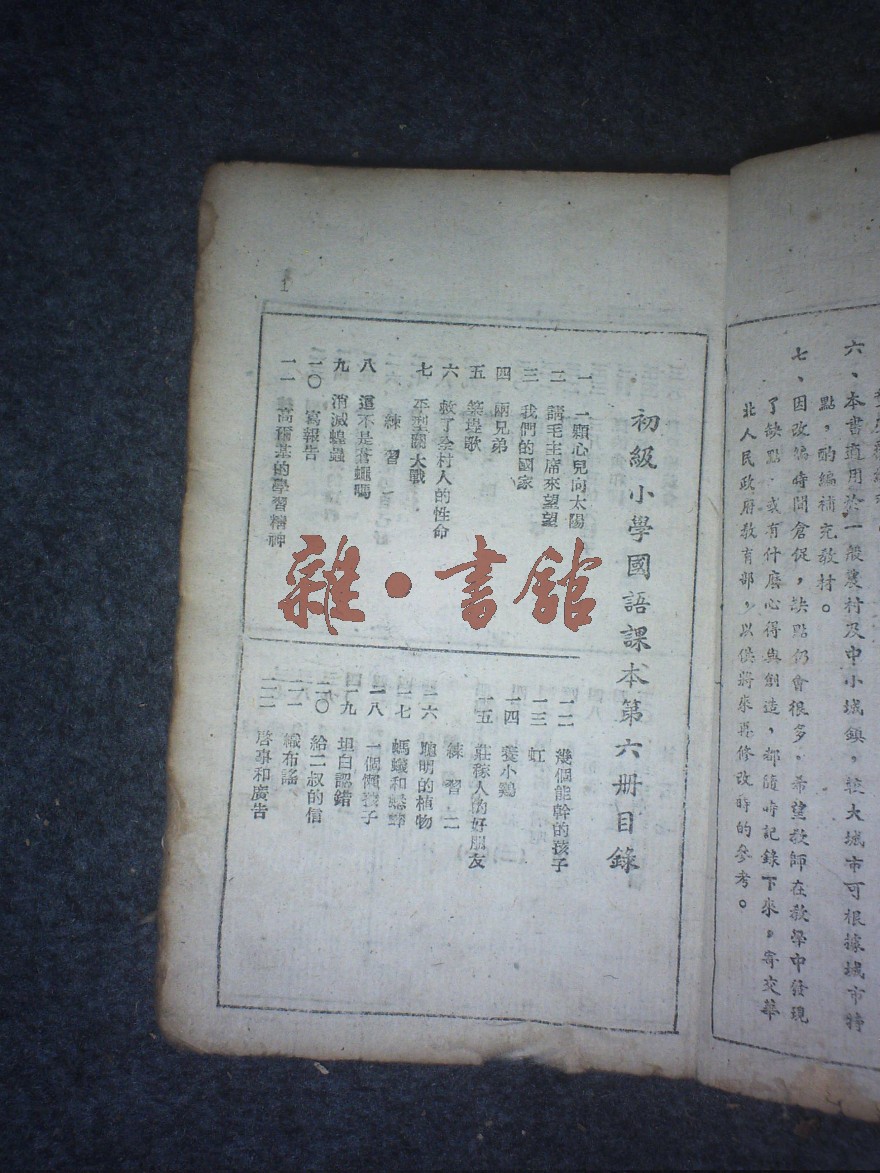 六、本書適用於一般農村及中小城鎮，較大城市可根據城市特
點，酌編補充教材。
七、因改編時間倉促，缺點仍會很多，希望教師在教學中發現
了缺點，或有什麽心得與創造，都隨時記錄下來，寄交華
北人民政府教育部，以供將來再修改時的參考。
初級小學國語課本第六册目錄
一 一顆心兒向太陽
二 請毛主席來望望
三 我們的國家
四 兩兄弟
五 築堤歌
六 救了全村人的性命
七 平型關大戰
練習一
八 這不是蒼蠅嗎
九 消滅蝗蟲
一〇 寫報告
一一 高爾基的學習精神
一二 幾個能幹的孩子
一三 虹
一四 養小鷄
一五 莊稼人的好朋友
練習二
一六 聰明的植物
一七 螞蟻和蟋蟀
一八 一個懶孩子
一九 坦白認錯
二〇 給二叔的信
二一 織布謠
二二 啓事和廣告
雜·書館